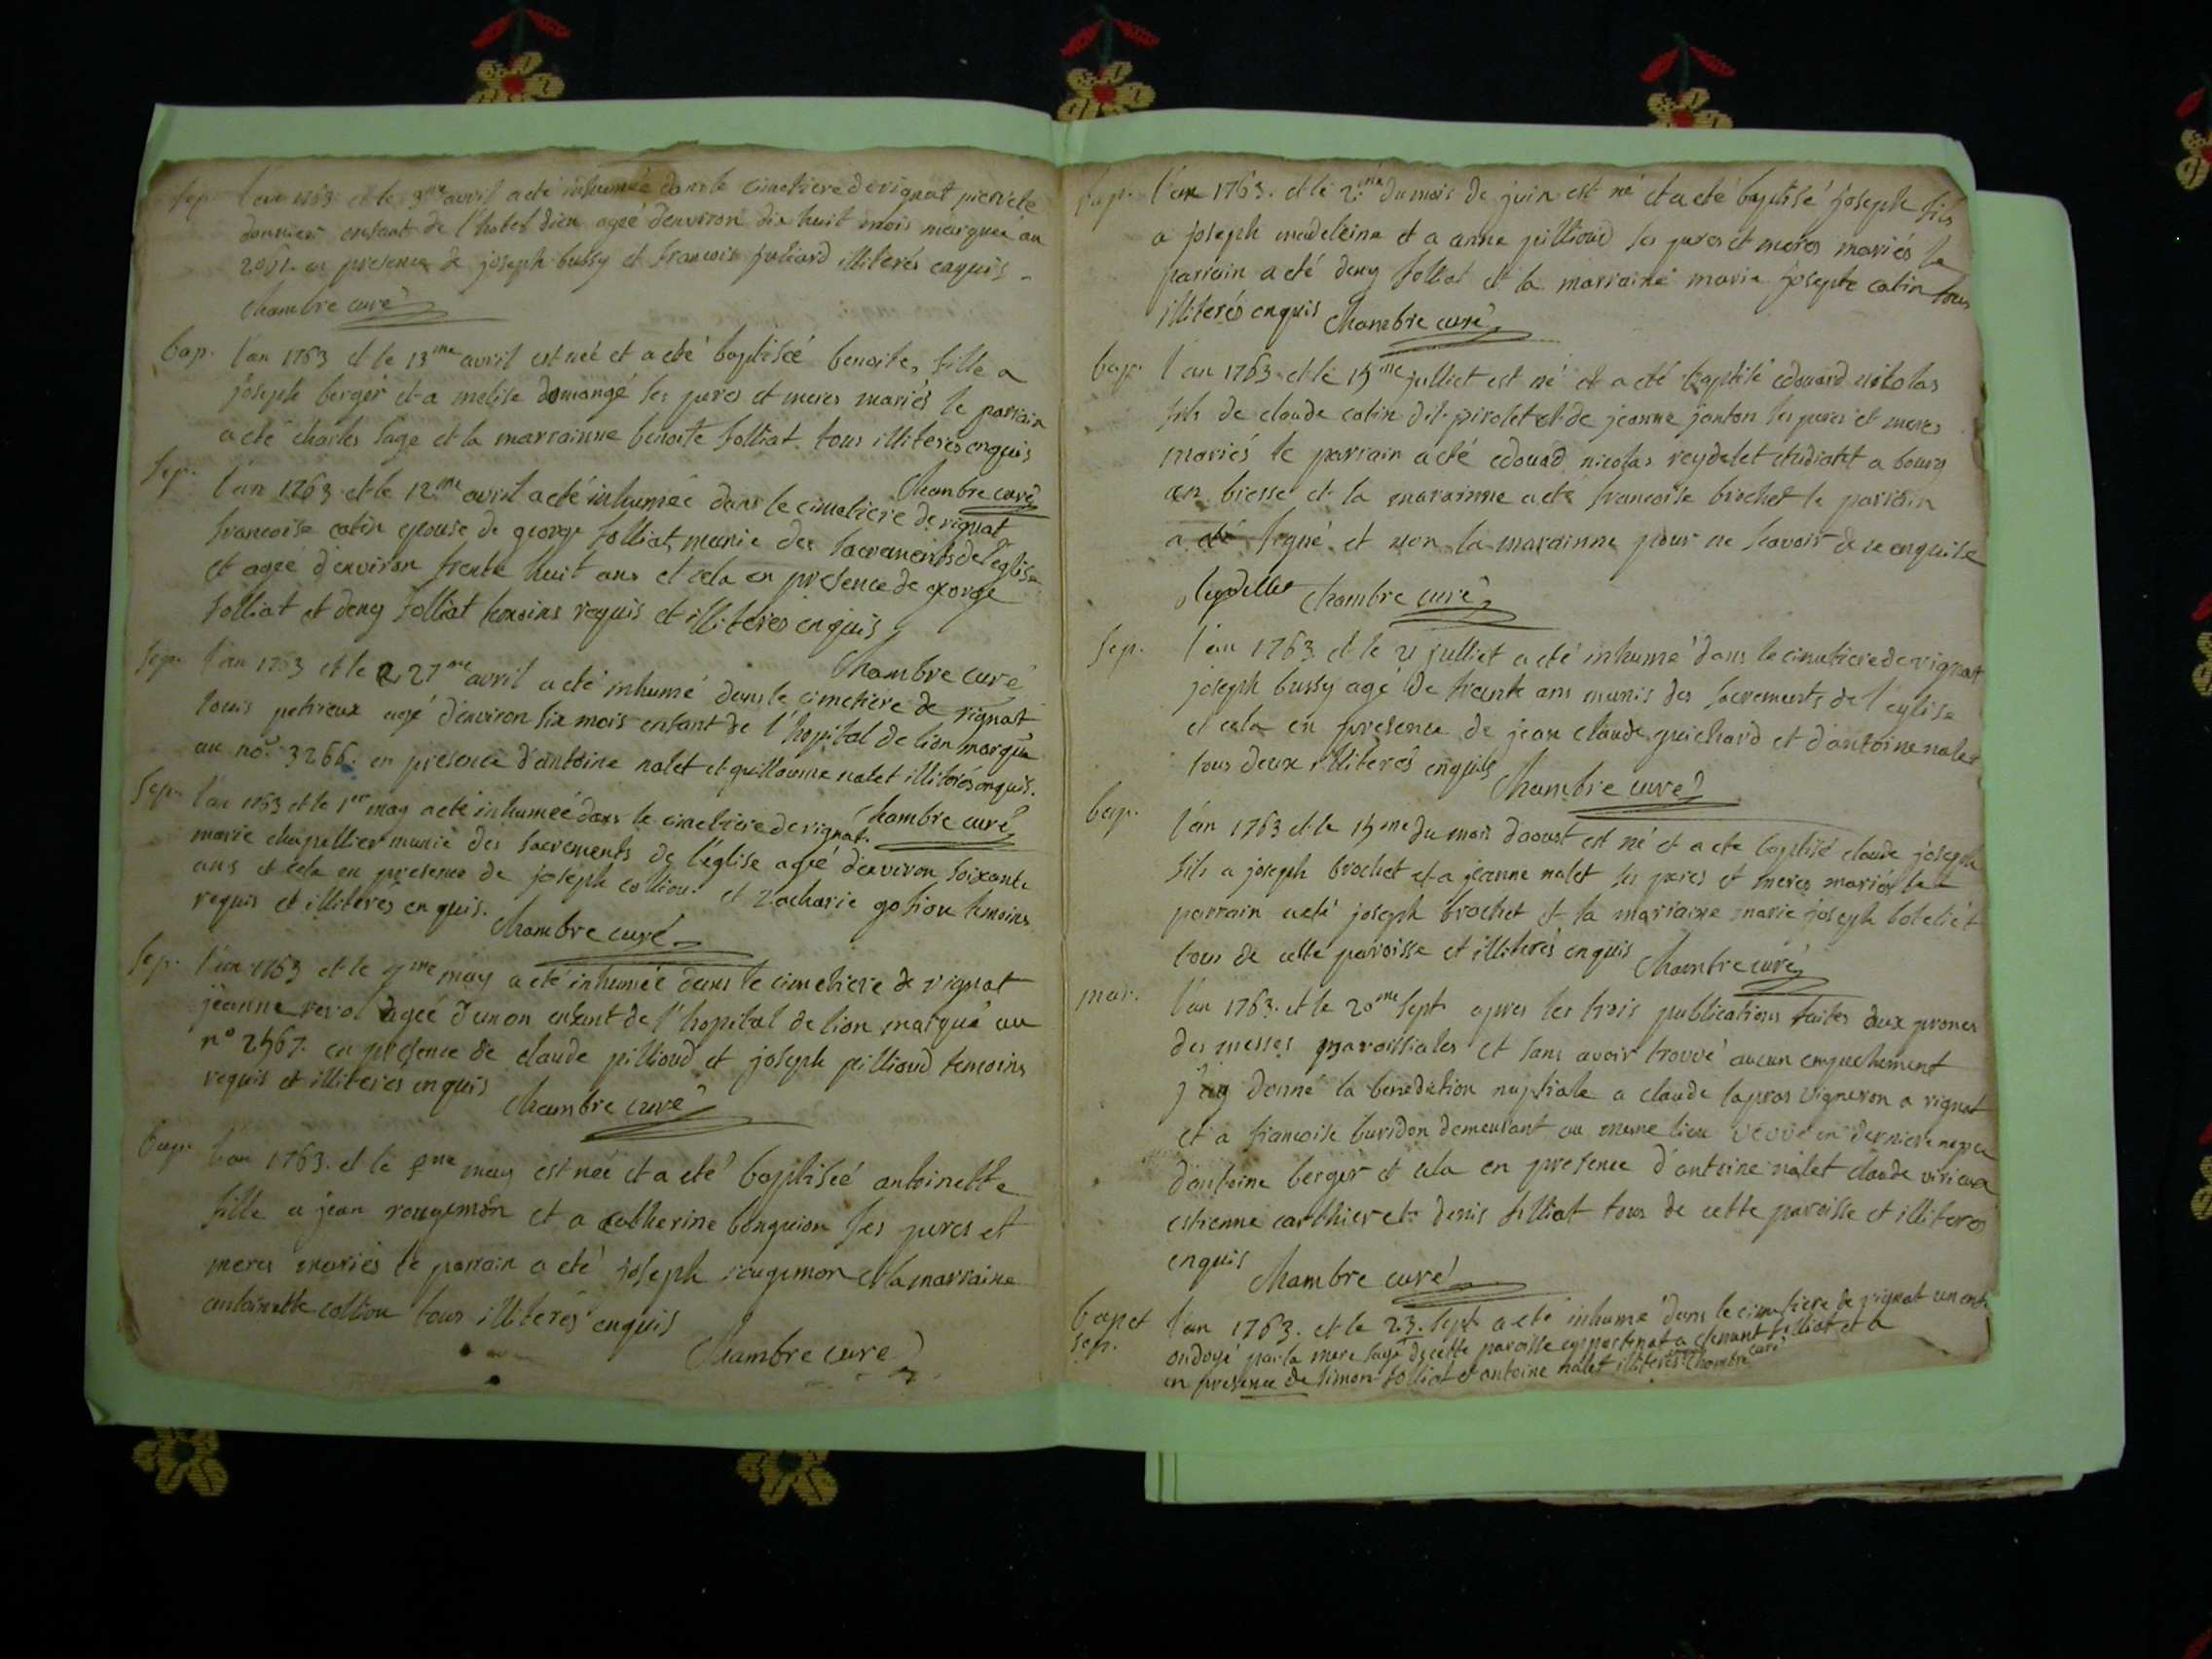 sep. l'an 1763 et le 3me avril a eté inhumée dans le cimetiere de rignat pierrete
donnier enfant de l'hotel dieu ageé denviron dix huit mois marquée au
en presence de joseph bussy et francois juliard illiterés enquis
Chambre curé
bap. l'an 1763 et le 13me avril est neé et a eté baptiseé benoite, fille a
joseph berger et a melise domangé ses peres et meres mariés le parrain
a eté charles sage et la marrainne benoite folliat tous illiteres enquis
Chambre curé
sep. l'an 1763 et le 12me avril a eté inhumeé dans le cimetiere de rignat
francoise catin epouse de george folliat, munie des sacrements de l'eglise
et ageé d'environ trente huit ans et cela en presence de george
folliat et deny folliat temoins requis et illiteres enquis
Chambre curé
sep. l'an 1763 et le 27me avril a eté inhumé dans le cimetiere de rignat
louis petrieux agé d'environ six mois enfant de l'hopital de lion marqué
au no. 3266. en presence d'antoine nalet et guillaume nalet illiterés enquis.
Chambre curé
sep. l'an 1763 et le 1er may a eté inhumeé dans le cimetiere de rignat.
marie chapellier munie des sacrements de l'église ageé d'environ soixante
ans et cela en presence de joseph colliou et zacharie gotiou temoins
requis et illiterés enquis. Chambre curé
sep. l'an 1763 et le 7me may a eté inhumeé dans le cimetiere de rignat
jeanne revol ageé d'un an enfant de l'hopital de lion marqué au
n° 2567. en presence de claude pillioud et joseph pillioud temoins
requis et illiterés enquis Chambre curé
bap. l'an 1763. et le me may est neé et a eté baptiseé antoinette
fille a jean rougemon et a catherine bonguion ses peres et
meres mariés le parrain a eté joseph rougemon et la marraine
antoinette colliou tous illiterés enquis
Chambre curé
bap. l'an 1763. et le 2.me du mois de juin est né et a eté baptisé joseph fils
a joseph madeleine et a anne pillioud ses peres et meres mariés le
parrain a eté deny folliat et la marraine marie josepte catin tous
illiterés enquis Chambre curé
bap. l'an 1763. et le 15me julliet est né et a eté baptisé edouard nicolas
fils de claude catin dit pirolet et de jeanne janton ses peres et meres
mariés le parrain a eté edouad nicolas reydelet etudiant a bourg
en bresse et la marainne a eté francoise brochet le parrain
a signé et non la marainne pour ne scavoir de ce enquise
Reydellet Chambre curé
sep. l'an 1763. et le 21 julliet a eté inhumé dans le cimetiere de rignat
joseph bussy agé de trente ans munis des sacrements de l'eglise
et cela en presence de jean claude guichard et d'antoine nalet
tous deux illiterés enquis Chambre curé
bap. l'an 1763 et le 15me du mois daoust est né et a eté baptisé claude joseph
fils a joseph brochet et a jeanne nalet ses peres et meres mariés le
parrain a eté joseph brochet et la marraine marie joseph
tous de cette paroisse et illiterés enquis Chambre curé
mar. l'an 1763. et le 20me sept. apres les trois publications faites aux prones
des messes paroissiales et sans avoir trouvé aucun empechement
j'ay donné la benediction nuptiale a claude lapras vigneron a rignat
et a francoise buridon demeurant au meme lieu veuve en derniere
d'antoine berger et cela en presence d'antoine nalet claude virieux
estienne carthier et denis folliat tous de cette paroisse et illiterés
enquis Chambre curé
bap et l'an 1763. et le 23. sept. a eté inhumé dans le cimetiere de rignat un enf.
sep. ondoyé par la mere sage de cette paroisse appartenat a clemant folliat et a
en presence de simon folliat et antoine nalet illiterés Chambre curé